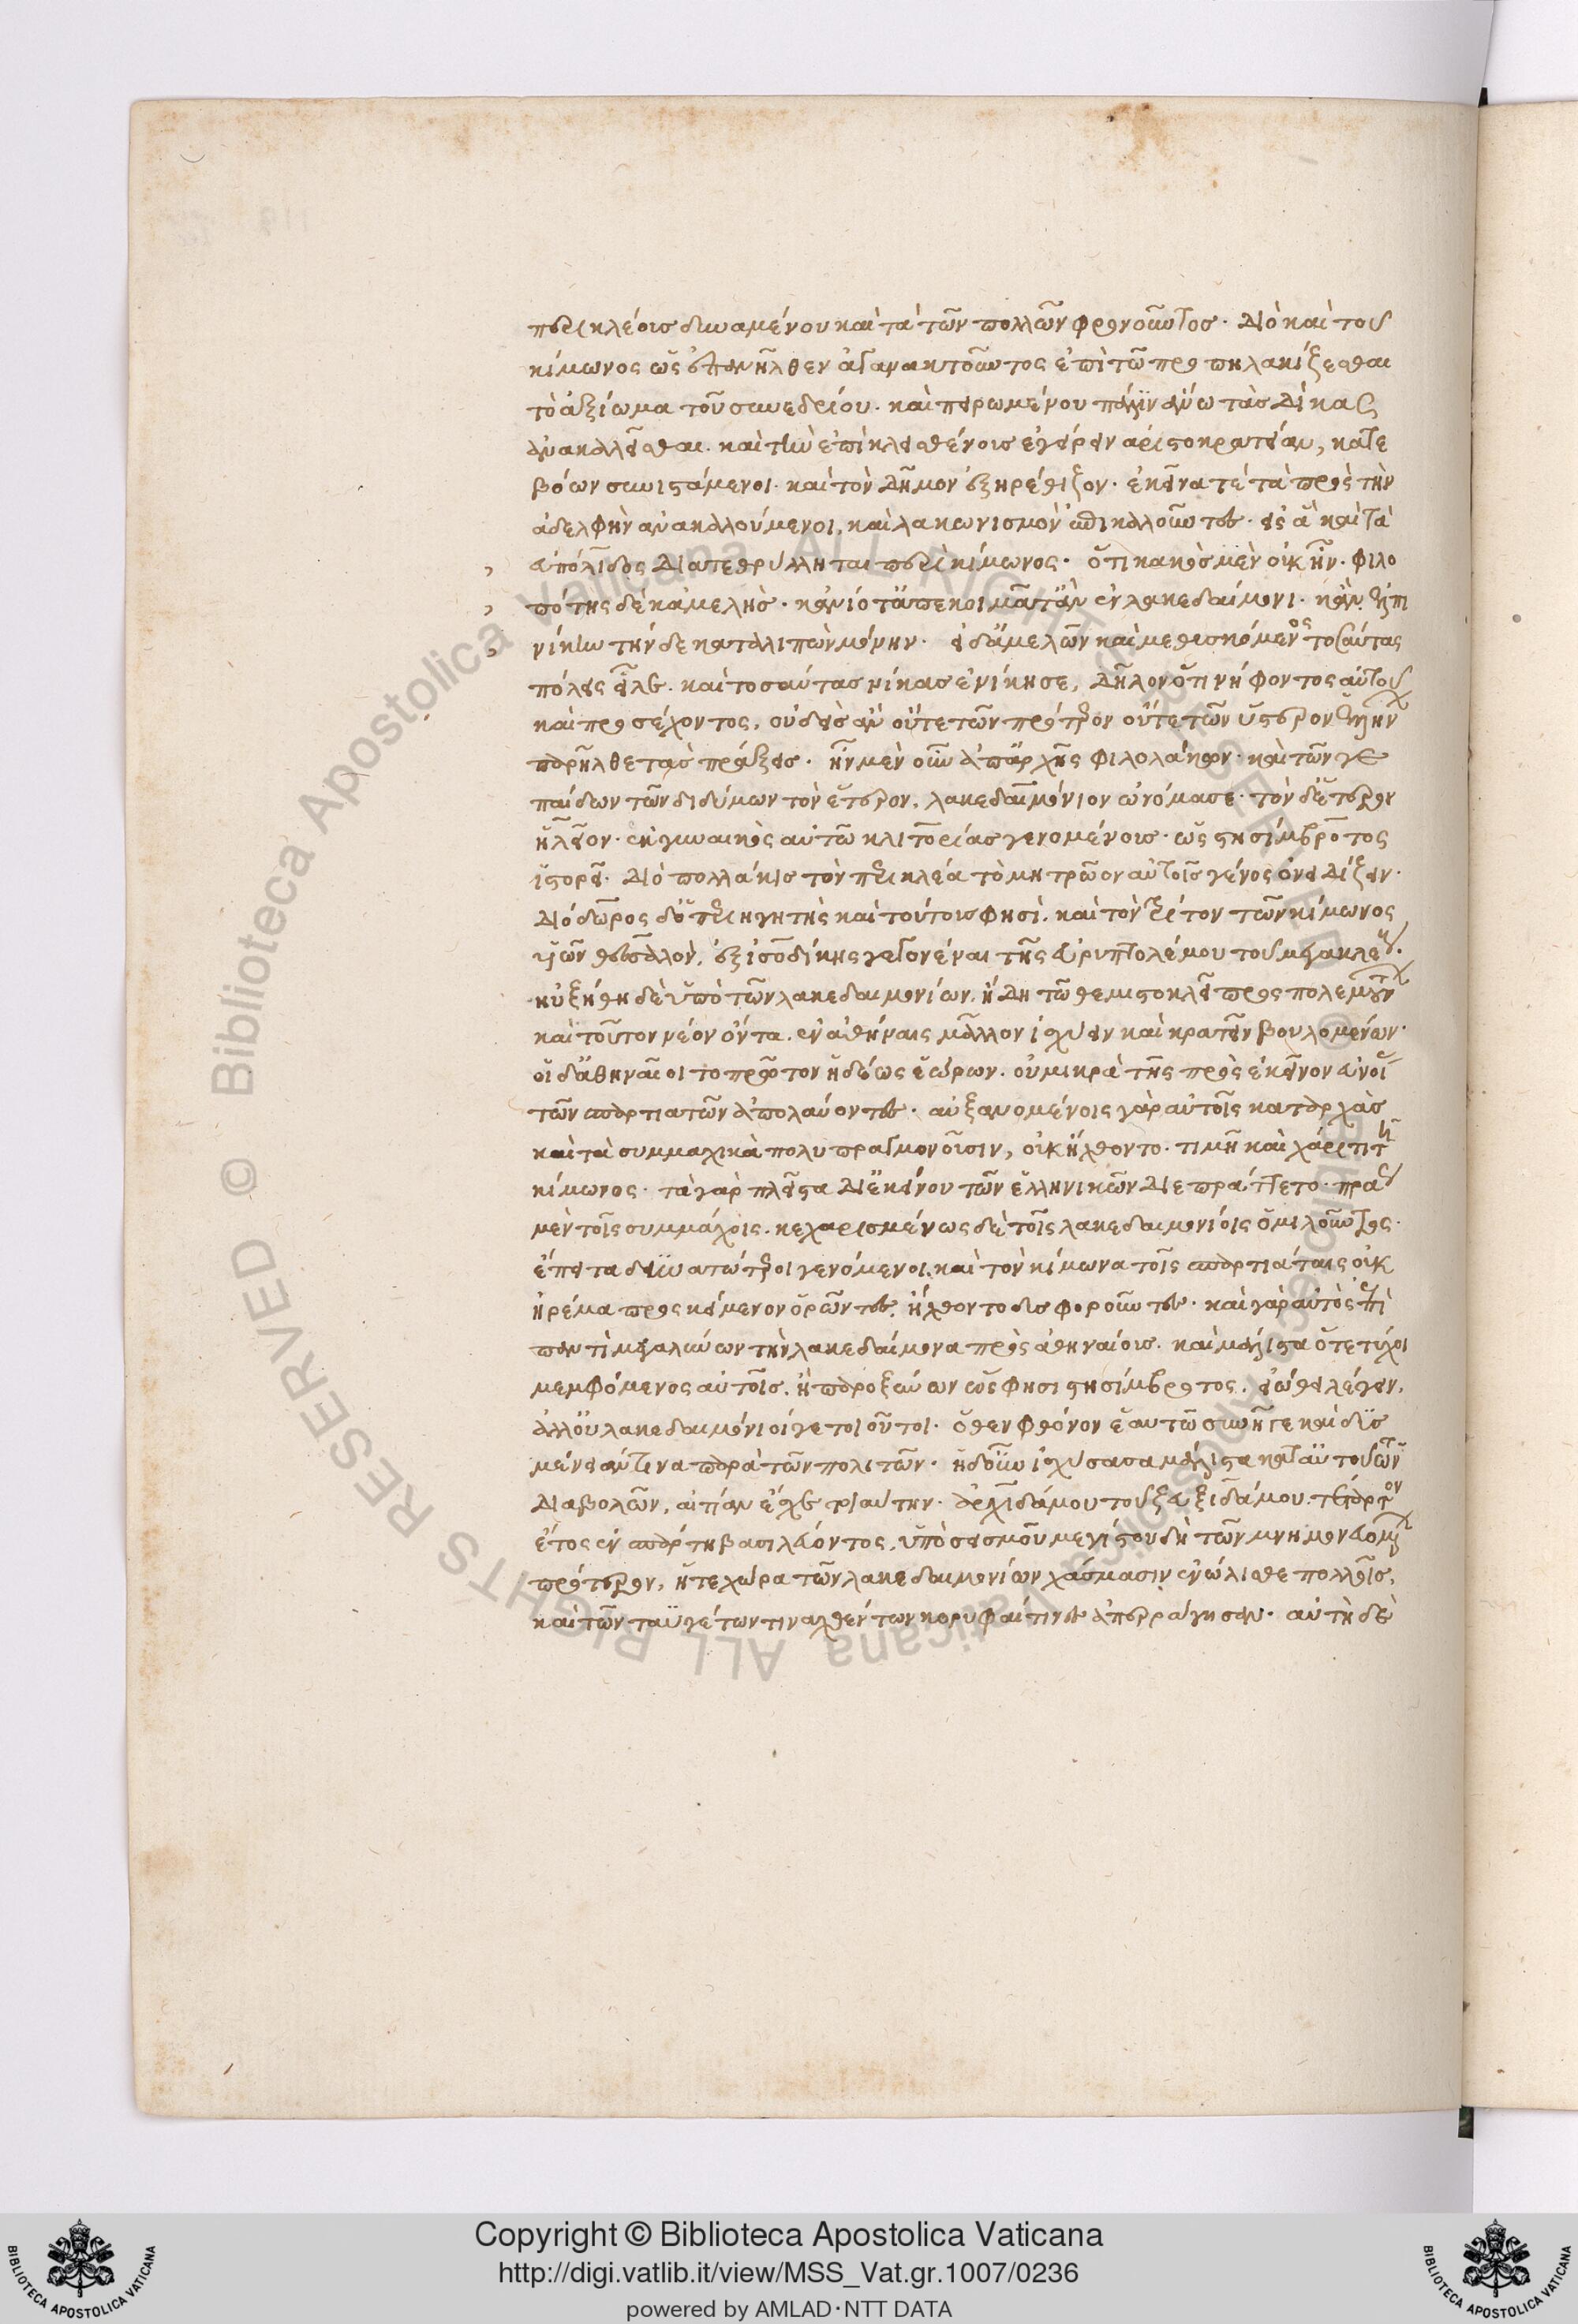 περικλέους δυναμένου καὶ τὰ τῶν πολλῶν φρονοῦντος. διὸ καὶ τοῦ
κίμωνος ὡς ἐπανῆλθεν ἀγανακτοῦντος ἐπὶ τῶ προπηλακίζεσθαι
τὸ ἀξίωμα τοῦ συνεδρίου. καὶ πειρωμένου πάλιν ἄνω τὰς δίκας
ἀνακαλεῖσθαι. καὶ τὴν ἐπὶ κλεισθένους ἐγείρειν ἀριστοκρατείαν, κατε
βόων συνιστάμενοι. καὶ τὸν δῆμον ἐξηρέθιζον. ἐκεῖνα τέ τὰ πρὸς τὴν
ἀδελφὴν ἀνακαλούμενοι, καὶ λακωνισμὸν ἐπικαλοῦντες. εἰς ἃ καὶ τὰ
εὐπόλιδος διατεθρύλληται περὶ κίμωνος. ὅτι κακὸς μὲν οὐκ ἦν. φιλο
πότης δὲ κἀμελὴς. κἀνίοτ' ἂν ἀπεκοιμᾶτ' ἂν ἐν λακεδαίμονι. κἂν ἐλπι
νίκην τήνδε καταλιπὼν μόνην. εἰ δ' ἀμελῶν καὶ μεθυσκόμενος τοσαύτας
πόλεις εἷλε. καὶ τοσαύτας νίκας ἐνίκησε, δῆλον ὅτι νήφοντος αὐτοῦ
καὶ προσέχοντος, οὐδεὶς ἂν οὔτε τῶν πρότερον οὔτε τῶν ὕστερον ἑλλήνων
παρῆλθε τὰς πράξεις. ἦν μὲν οὖν ἀπ' ἀρχῆς φιλολάκων. καὶ τῶν γε
παίδων τῶν διδύμων τὸν ἕτερον, λακεδαιμόνιον ὠνόμασε. τὸν δ' ἕτερον
ἠλεῖον. ἐκ γυναικὸς αὐτῶ κλιτορίας γενομένους. ὡς στησίμβροτος
ἱστορεῖ. διὸ πολλάκις τὸν περικλέα τὸ μητρῶον αὐτοῖς γένος ὀνειδίζειν.
διόδωρος δ' ὁ περιηγητὴς καὶ τούτους φησὶ. καὶ τὸν τρίτον τῶν κίμωνος
υἱῶν θεσσαλὸν, ἐξ ἰσοδίκης γεγονέναι τῆς εὐρυπτολέμου τοῦ μεγακλέους.
ηὐξήθη δὲ ὑπὸ τῶν λακεδαιμονίων, ἤδη τῶ θεμιστοκλεῖ προσπολεμούντων
καὶ τοῦτον νέον ὄντα. ἐν ἀθήναις μᾶλλον ἰσχύειν καὶ κρατεῖν βουλομένων.
οἱ δ' ἀθηναῖοι τὸ πρῶτον ἡδέως ἑώρων. οὐ μικρὰ τῆς πρὸς ἐκεῖνον εὐνοί
τῶν σπαρτιατῶν ἀπολαύοντες. αὐξανομένοις γὰρ αὐτοῖς κατ' ἀρχὰς
καὶ τὰ συμμαχικὰ πολυπραγμονοῦσιν, οὐκ ἤχθοντο. τιμῆ καὶ χάριτι τῆ
κίμωνος. τὰ γὰρ πλεῖστα δι' ἐκείνου τῶν ἑλληνικῶν διεπράττετο. πράως
μὲν τοῖς συμμάχοις. κεχαρισμένως δὲ τοῖς λακεδαιμονίοις ὁμιλοῦντος.
ἔπειτα δυνατώτεροι γενόμενοι, καὶ τὸν κίμωνα τοῖς σπαρτιάταις οὐκ
ἠρέμα προσκείμενον ὁρῶντες. ἤχθοντο δυσφοροῦντες. καὶ γὰρ αὐτὸς ἐπὶ
παντὶ μεγαλύνων τὴν λακεδαίμονα πρὸς ἀθηναίους. καὶ μάλιστα ὅτε τύχοι
μεμφόμενος αὐτοῖς. ἢ παροξύνων ὡς φησι στησίμβροτος. εἰώθει λέγειν.
ἀλλ' οὐ λακεδαιμόνιοί γε τοιοῦτοι. ὅθεν φθόνον ἑαυτῶ συνῆγε καὶ δυσ
μένειάν τινα παρὰ τῶν πολιτῶν. ἡ δ' οὖν ἰσχύσασα μάλιστα κατ' αὐτοῦ τῶν
διαβολῶν, αἰτίαν ἔσχε τοιαύτην. ἀρχιδάμου τοῦ ζευξιδάμου. τέταρτον
ἔτος ἐν σπάρτη βασιλεύοντος. ὑπὸ σεισμοῦ μεγίστου δὴ τῶν μνημονευομένων
πρότερον, ἥ τε χώρα τῶν λακεδαιμονίων χάσμασιν ἐνώλισθε πολλοῖς.
καὶ τῶν ταϋγέτων τιναχθέντων κορυφαί τινες ἀπερράγησαν. αὐτὴ δὲ
Copyright © Biblioteca Apostolica Vaticana
http://digi.vatlib.it/view/MSS_Vat.gr.1007/0236
powered by AMLAD·NTT DATA